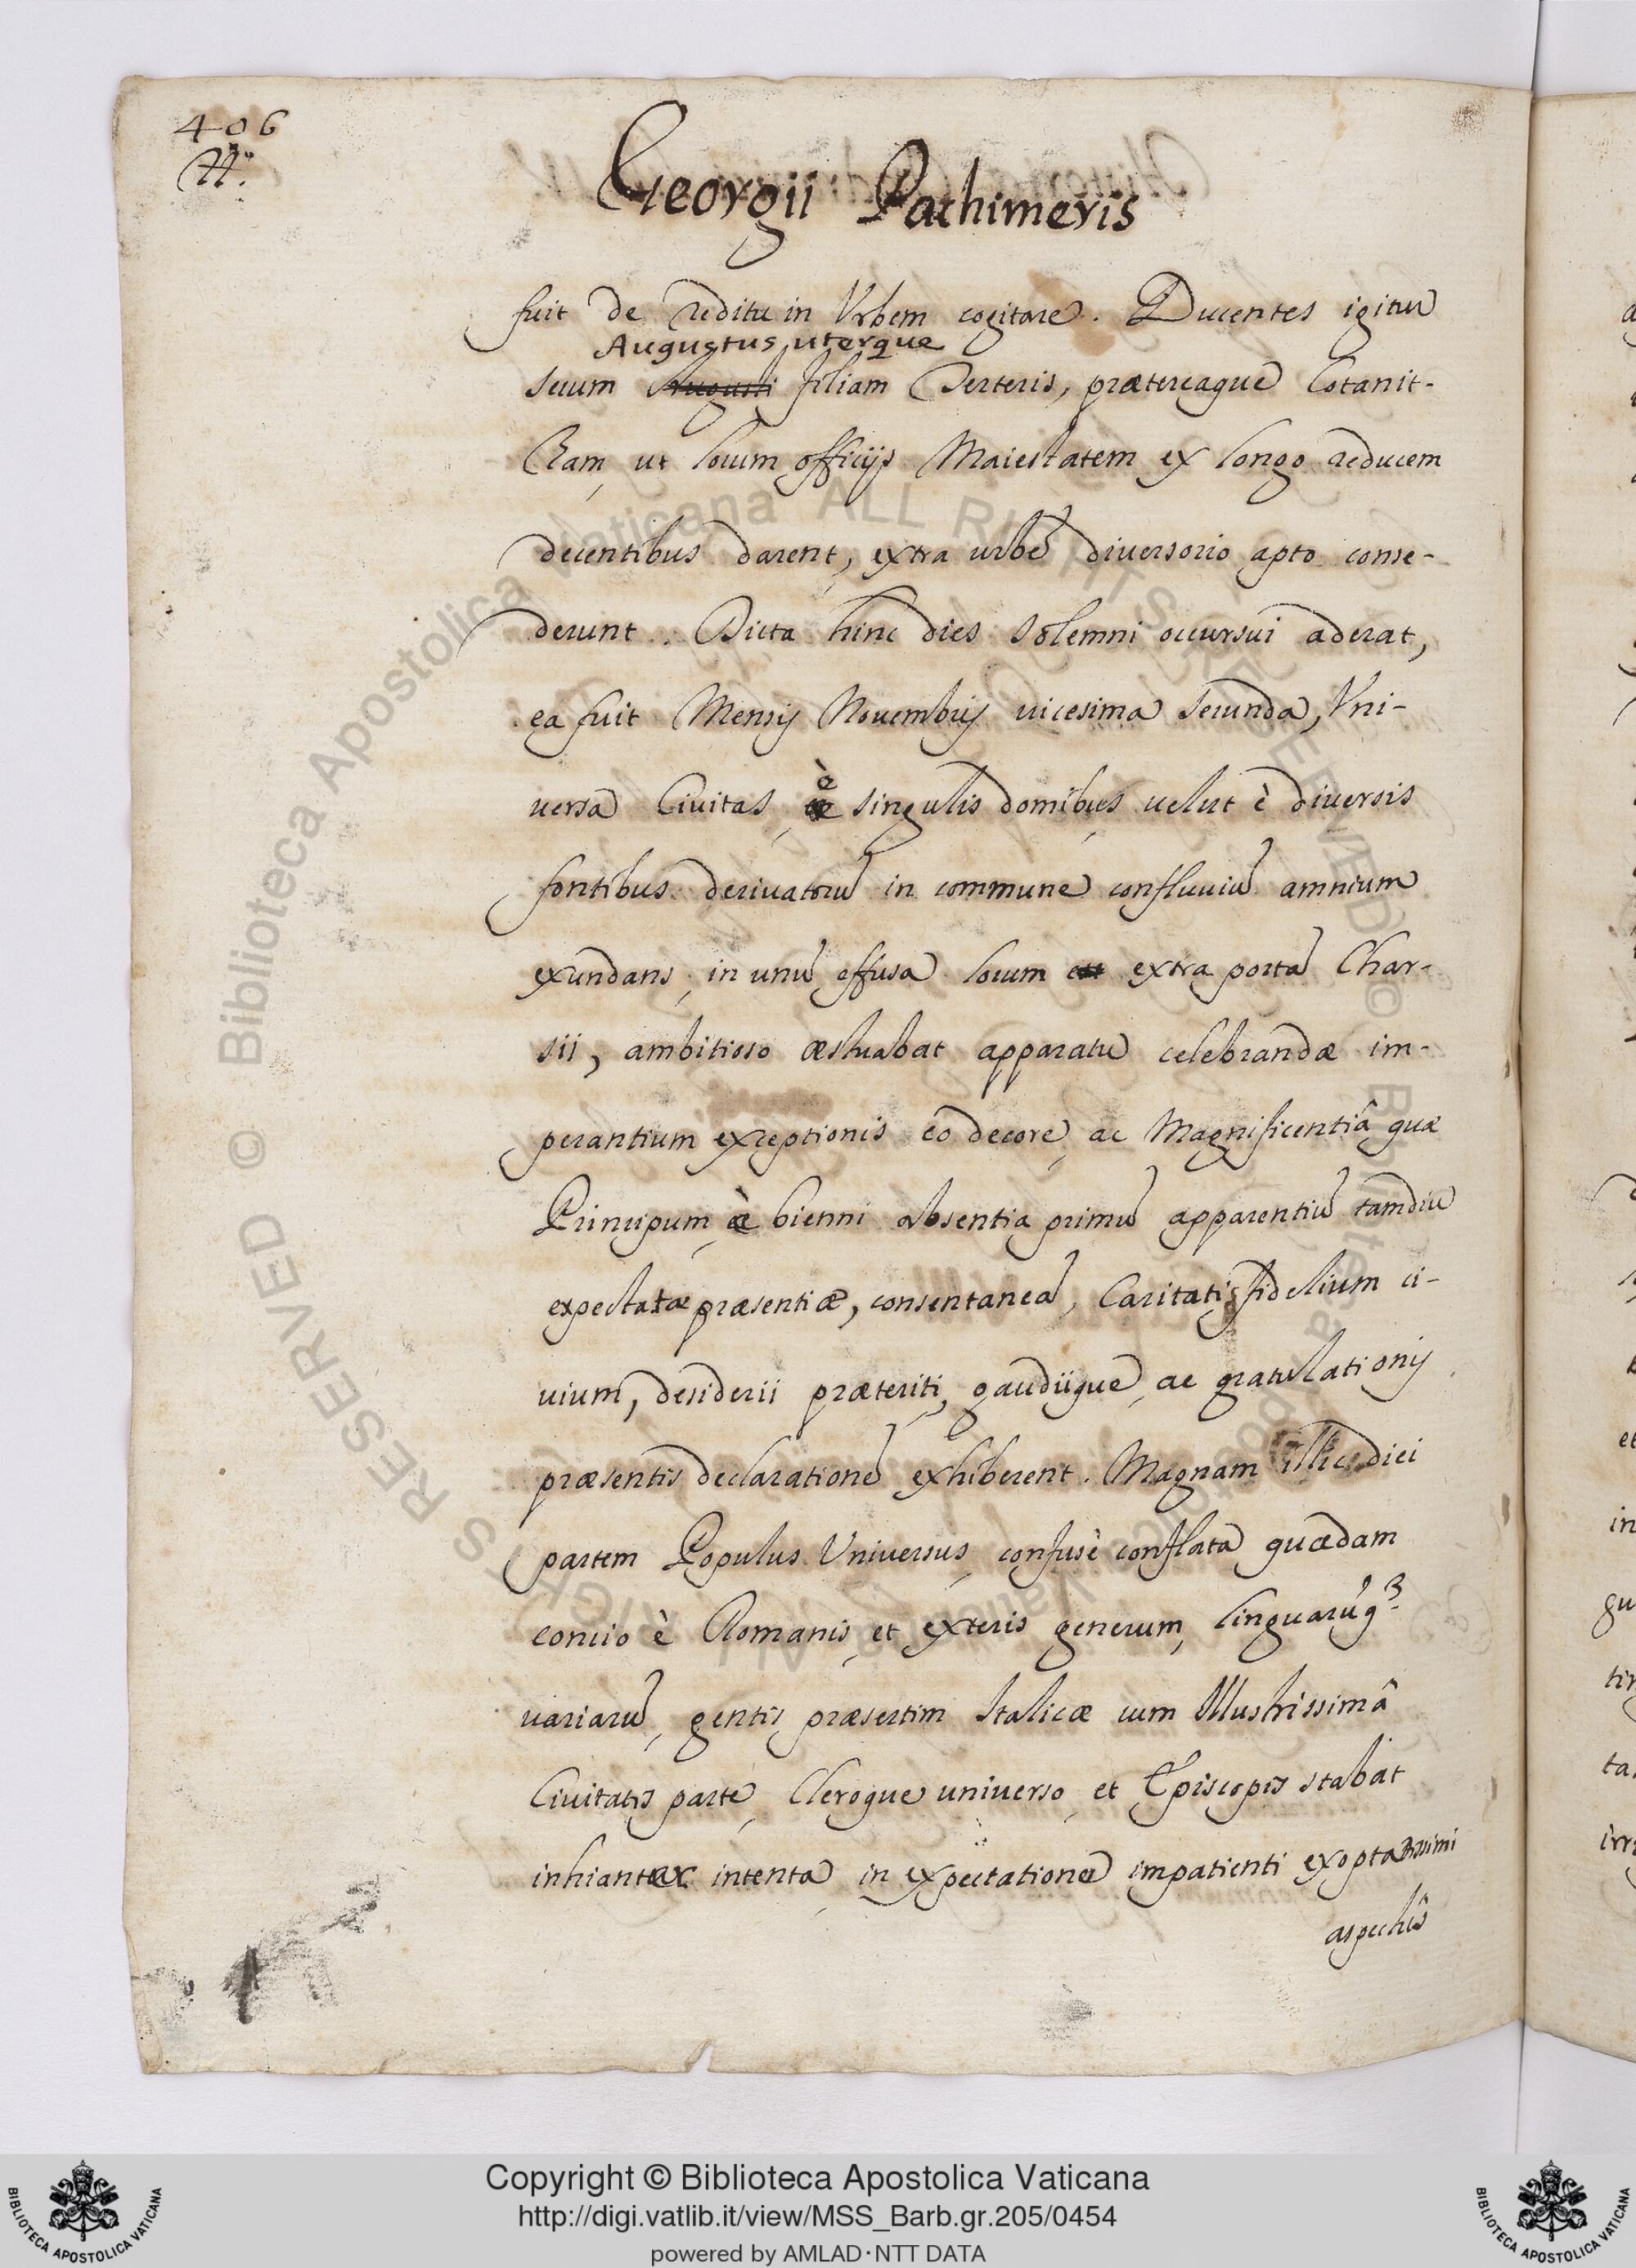 406
Georgii Pachimeris
fuit de reditu in Vrbem cogitare. Ducentes igitur
Augustus uterque
secum Augusti filiam Terteris, prætereaque Cotanit-
zam, ut locum officijs Maiestatem ex longo reducem
decentibus darent, extra urbē diversorio apto conse-
derunt. Dicta hinc dies solemni occursui aderat,
ea fuit Mensis Nouembris uicesima secunda, Vni-
uersa Ciuitas, è singulis domibus uelut è diuersis
fontibus deriuatorū in commune confluuiū amnium
exundans, in unū effusa locum extra portā Char-
sii, ambitioso æstuabat apparatu celebrandæ im-
perantium exceptionis eo decore, ac Magnificentiâ quæ
Principum, è bienni absentia primū apparentiū tamdiu
expectatæ præsentiæ, consentaneā, Caritatis fidelium ci-
uium, desiderii præteriti, gaudiique, ac gratulationis
præsentis declarationē exhiberent. Magnam illic diei
partem Populus Vniuersus, confusè conflata quædam
concio è Romanis, et exteris generum, linguarūq3
uariarū, gentis præsertim Italicæ cum Illustrissimâ
Ciuitatis parte, Cleroque uniuerso, et Episcopis stabat
inhianter intenta, in expectatione impatienti exoptatissimi
aspectûs
© Biblioteca Apostolica Vaticana ALL RIGHTS RESERVED © Biblioteca Apostolica Vaticana ALL RIGHTS RESERVED
Copyright © Biblioteca Apostolica Vaticana
http://digi.vatlib.it/view/MSS_Barb.gr.205/0454
powered by AMLAD·NTT DATA
BIBLIOTECA APOSTOLICA VATICANA
BIBLIOTECA APOSTOLICA VATICANA